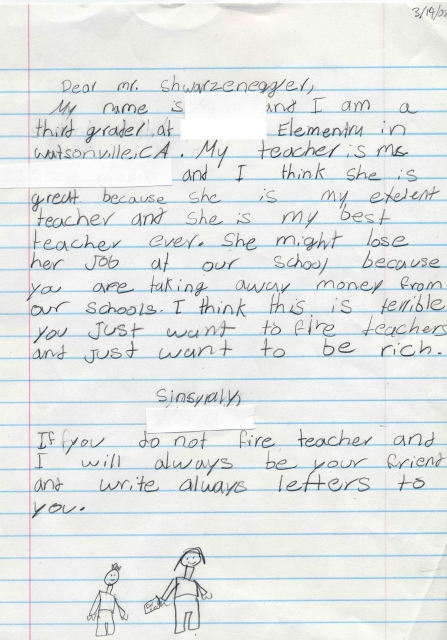 3/19/0
Dear mr. Shwarzenegger,
My name is and I am a
third grader at Elementru in
watsonville,CA. My teacher is ms.
and I think she is
great because she is my exelent
teacher and she is my best
teacher ever. She might lose
her JOB at our school because
you are taking away money from
our schools. I think this is terrible
you Just want to fire teachers
and Just want to be rich.
Sinsyrally,
If you do not fire teacher and
I will always be your friend
and write always letters to
you.